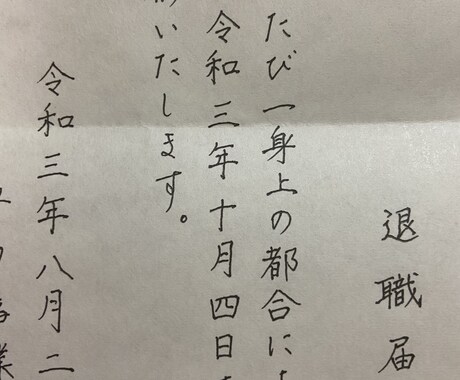 退職届
たび一身上の都合に
令和三年十月四日
いたします。
令和三年八月二